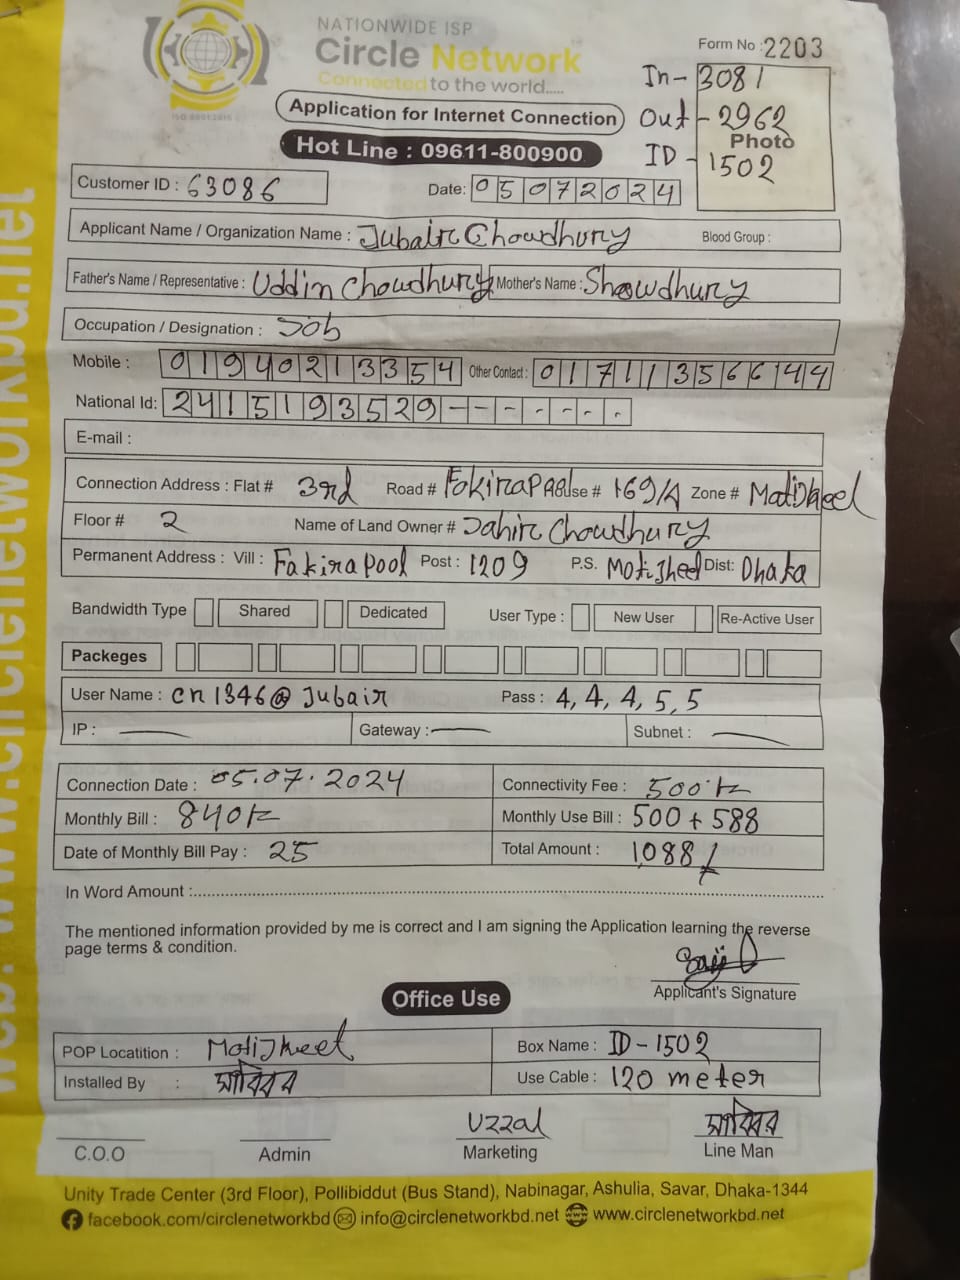 NATIONWIDE ISP
Circle Network
Connected to the world.....
Form No : 2203
In - 3081
Out - 2962
Photo
ID - 1502
Application for Internet Connection
Hot Line : 09611-800900
Customer ID : 63086
Date: 05072024
Applicant Name / Organization Name : Jubair Choudhury Blood Group :
Father's Name / Representative : Uddin Choudhury Mother's Name : Showdhury
Occupation / Designation : Job
Mobile : 01940213354 Other Contact : 01711356644
National Id: 2415193529 - - - - - - -
E-mail :
Connection Address : Flat # 3rd Road # Fokirapool use # 169/A Zone # Motijheel
Floor # 2 Name of Land Owner # Jahir Choudhury
Permanent Address : Vill : Fakirapool Post : 1209 P.S. Motijheel Dist: Dhaka
Bandwidth Type Shared Dedicated User Type : New User Re-Active User
Packeges
User Name : cn1346@Jubair Pass : 4, 4, 4, 5, 5
IP : — Gateway : — Subnet : —
Connection Date : 05.07.2024 Connectivity Fee : 500 tk
Monthly Bill : 840 tk Monthly Use Bill : 500 + 588
Date of Monthly Bill Pay : 25 Total Amount : 1088/
In Word Amount :
The mentioned information provided by me is correct and I am signing the Application learning the reverse
page terms & condition.
Applicant's Signature
Office Use
POP Locatition : Motijheel Box Name : ID - 1502
Installed By : সাব্বির Use Cable : 120 meter
Uzzal সাব্বির
C.O.O Admin Marketing Line Man
Unity Trade Center (3rd Floor), Pollibiddut (Bus Stand), Nabinagar, Ashulia, Savar, Dhaka-1344
facebook.com/circlenetworkbd info@circlenetworkbd.net www.circlenetworkbd.net
web: www.circlenetworkbd.net